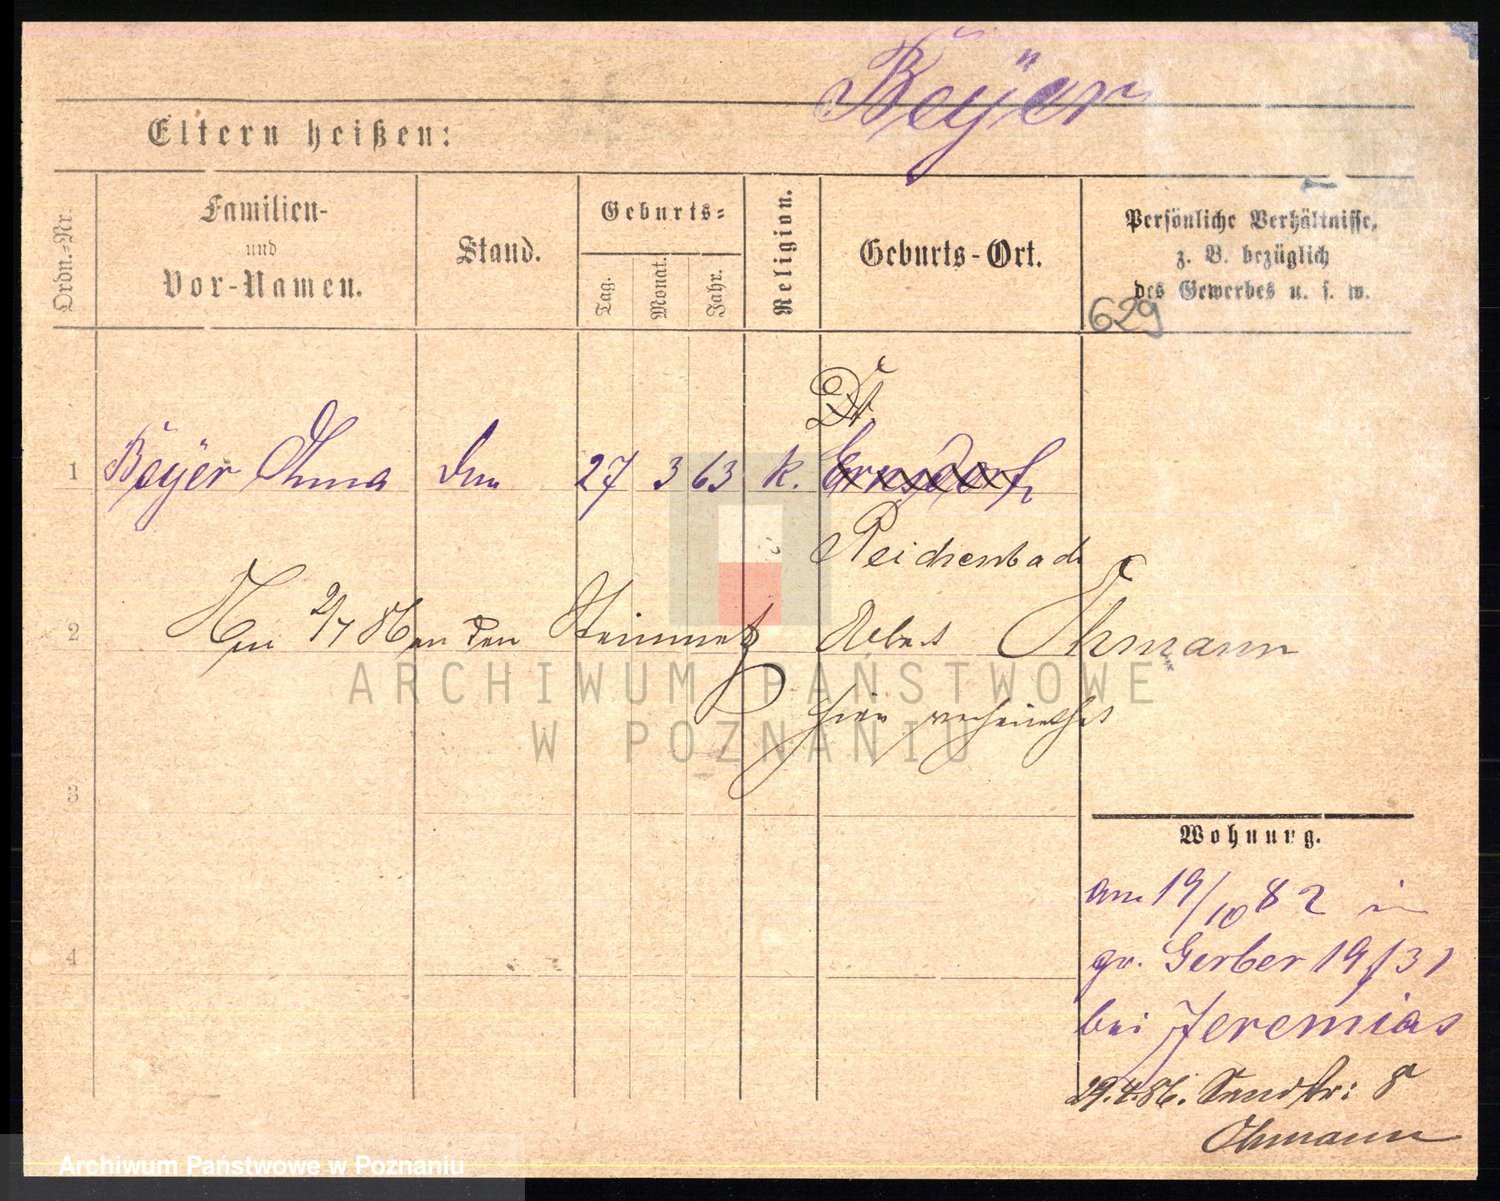 Beÿer
Eltern heißen:
Ordn.-Nr.
Familien-
und
Vor-Namen.
Stand.
Geburts-
Tag.
Monat.
Jahr.
Religion.
Geburts-Ort.
Persönliche Verhältnisse,
z. B. bezüglich
des Gewerbes u. s. w.
629
1 Beÿer 27 3 63 k. Ernsdorf
Reichenbach
2 2/7 86 an den Steinmetz Robert Ohmann
hier verheirathet
3
Wohnung.
am 19/10 82 in
gr. Gerber 19/31
bei Jeremias
29.4.86. Sandstr: 8
Ohmann
4
ARCHIWUM PAŃSTWOWE
W POZNANIU
Archiwum Państwowe w Poznaniu